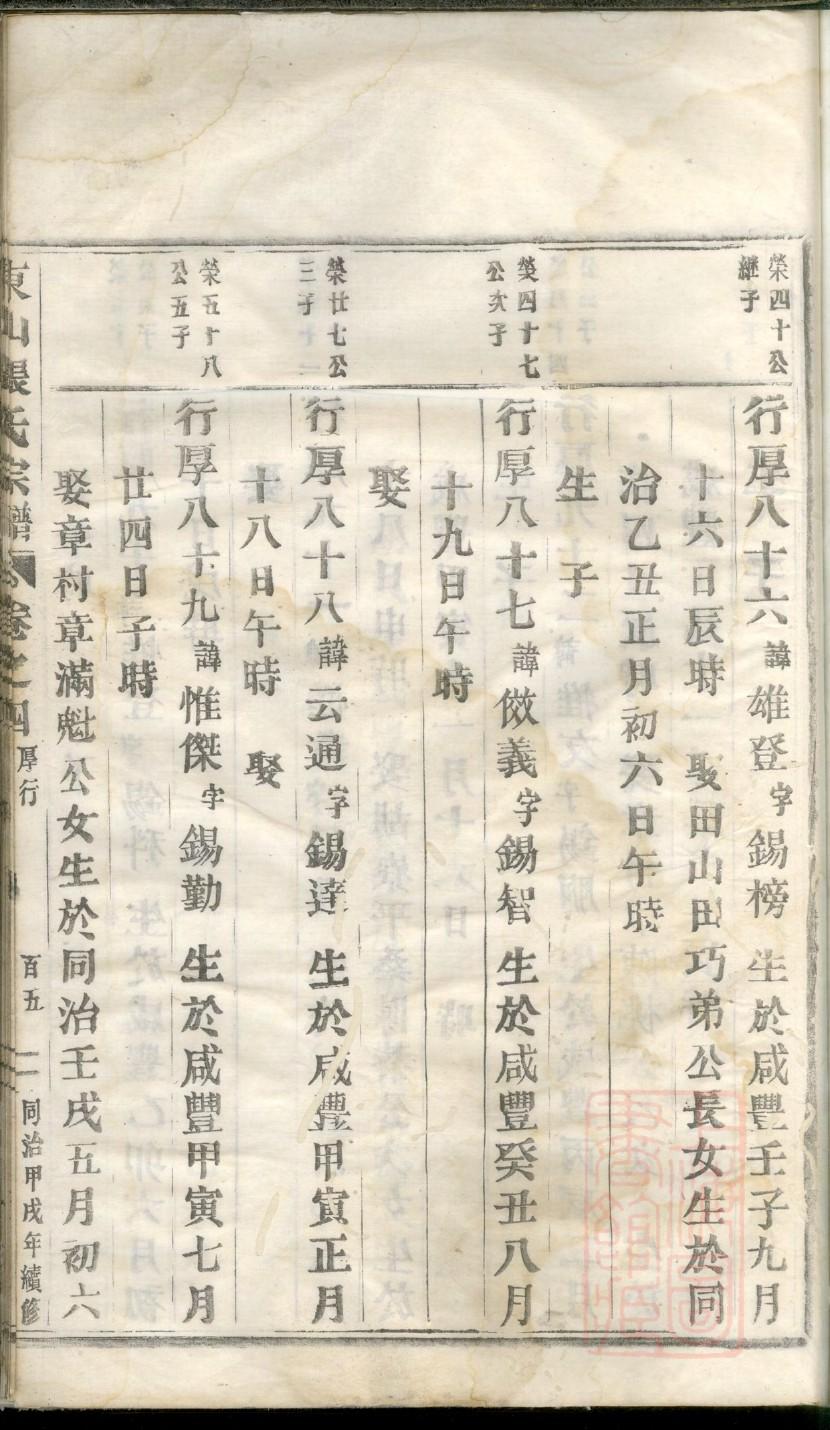 榮四十公
繼子
行厚八十六諱雄登字錫榜生於咸豐壬子九月
十六日辰時娶田山田巧弟公長女生於同
治乙丑正月初六日午時
生子
榮四十七
公次子
行厚八十七諱傚義字錫智生於咸豐癸丑八月
十九日午時
娶
榮廿七公
三子
行厚八十八諱云通字錫達生於咸豐甲寅正月
十八日午時娶
榮五十八
公五子
行厚八十九諱惟傑字錫勤生於咸豐甲寅七月
廿四日子時
娶章村章滿魁公女生於同治壬戌五月初六
東山張氏宗譜卷之四厚行百五同治甲戌年續修